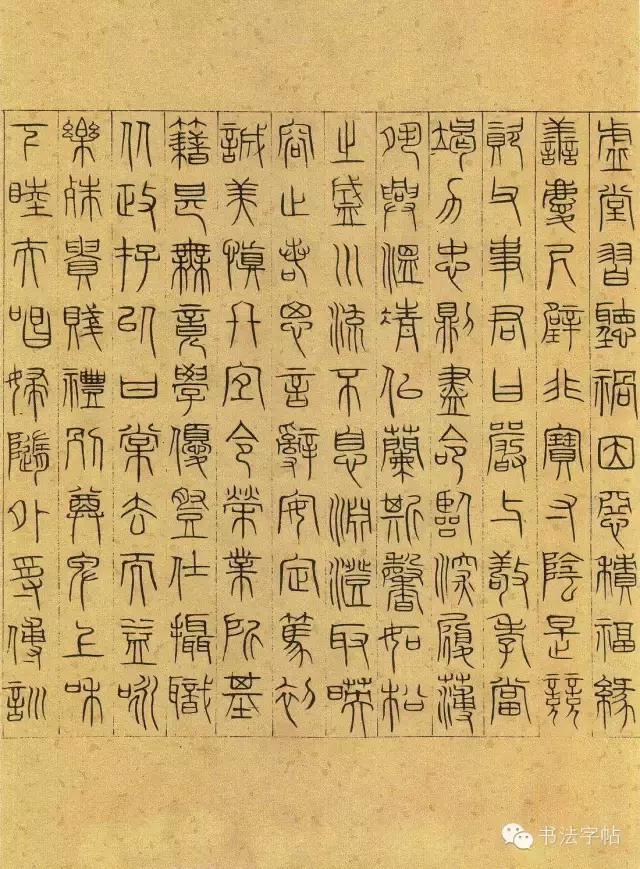 虛堂習聽禍因惡積福緣
善慶尺璧非寶寸陰是競
資父事君曰嚴與敬孝當
竭力忠則盡命臨深履薄
夙興溫凊似蘭斯馨如松
之盛川流不息淵澄取暎
容止若思言辭安定篤初
誠美慎終宜令榮業所基
籍甚無竟學優登仕攝職
從政存以甘棠去而益詠
樂殊貴賤禮別尊卑上和
下睦夫唱婦隨外受傅訓
书法字帖